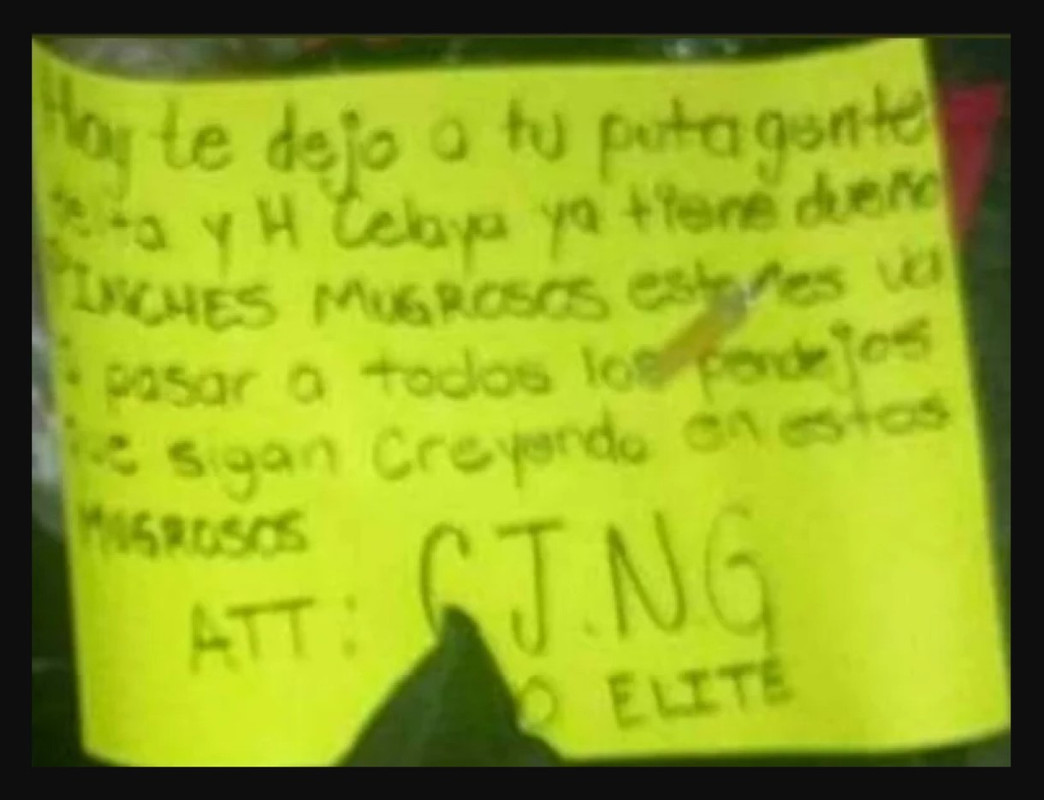 Hoy te dejo a tu puta gente
y H Celaya ya tiene dueño
PINCHES MUGROSOS va
pasar a todos los pendejos
sigan Creyendo en estos
MUGROSOS
ATT: C.J.N.G
ELITE